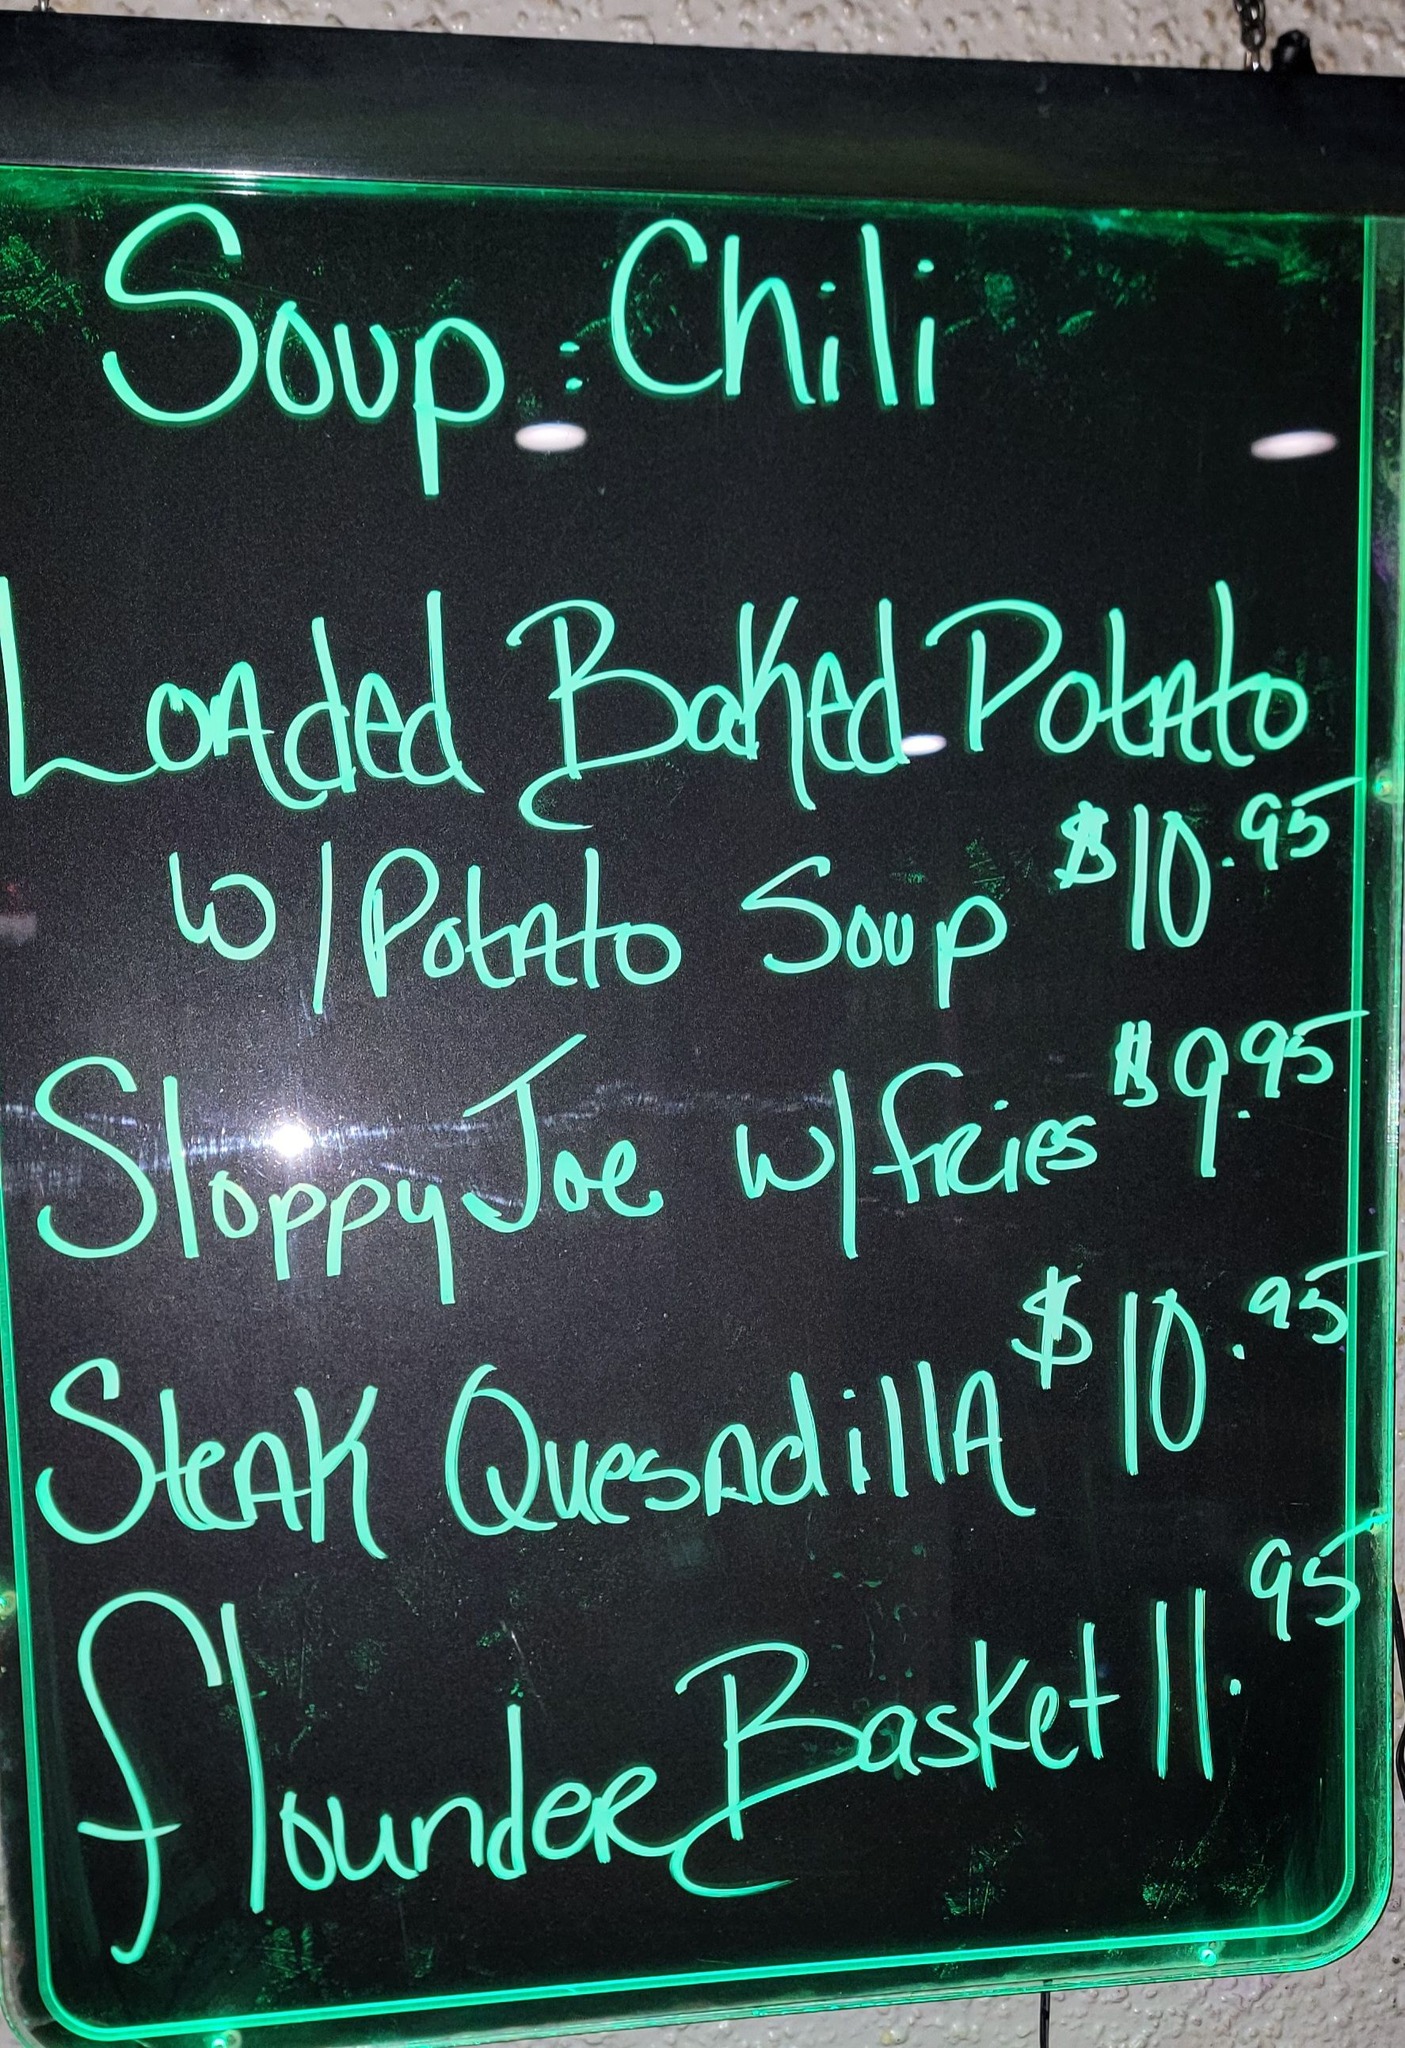 Soup: Chili
Loaded Baked Potato
w/Potato Soup $10.95
Sloppy Joe w/fries $9.95
Steak Quesadilla $10.95
flounder Basket 11.95